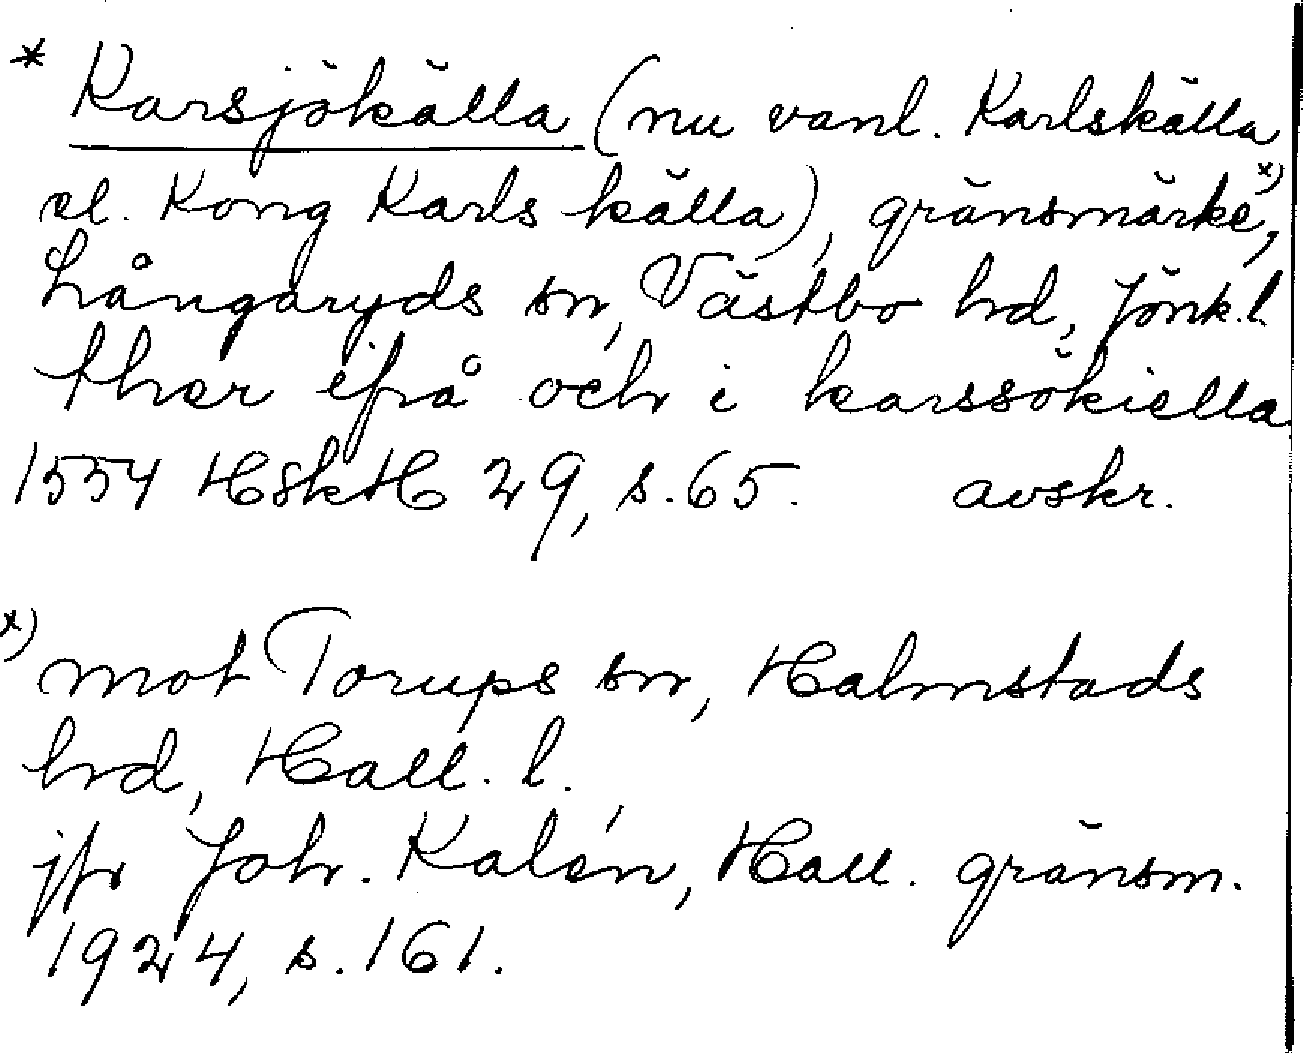 * Karsjökälla (nu vanl. Karlskälla
el. Kong Karls källa), gränsmärke x),
Långaryds sn, Västbo hd, Jönk. l.
ther ifrå och i karssökiella
1554 HSkH 29, s. 65. avskr.
x) mot Torups sn, Halmstads
hd, Hall. l.
jfr Joh. Kalén, Hall. gränsm.
1924, s. 161.